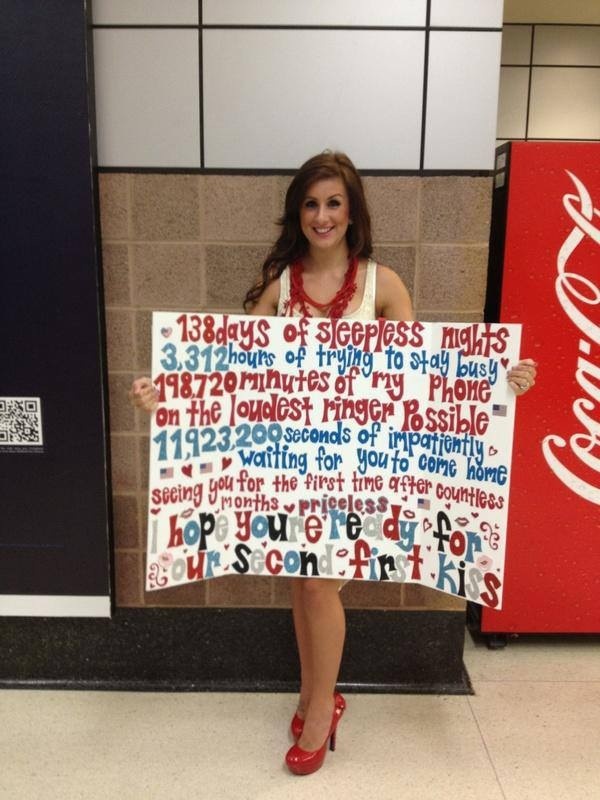 138days of sleepless nights
3,312hours of trying to stay busy
198,720minutes of my phone
on the loudest ringer Possible
11,923,200seconds of impatiently
waiting for you to come home
seeing you for the first time after countless
months priceless
I hope you're ready for
our second first kiss
Coca-Cola